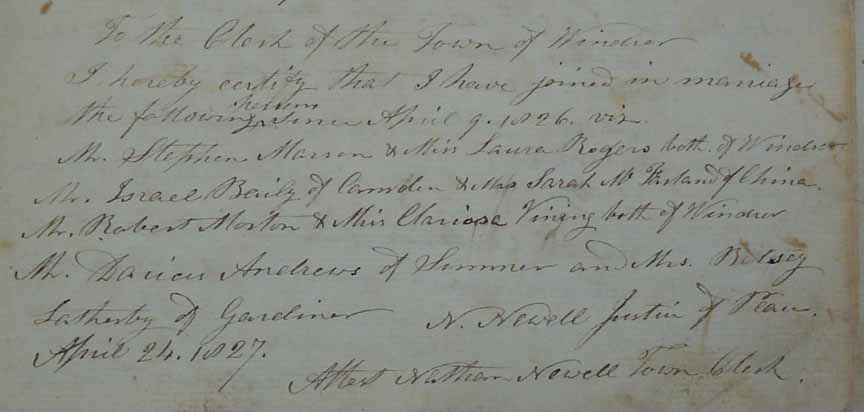 To the Clerk of the Town of Windsor
I hereby certify that I have joined in marriage
the following persons since April 9. 1826. viz.
Mr. Stephen Marson & Miss Laura Rogers both of Windsor
Mr. Israel Baily of Camden & Mrs Sarah Mc Farland of China.
Mr. Robert Morton & Miss Clarissa Vining both of Windsor
Mr. Darius Andrews of Sumner and Mrs. Betsey
Latherby of Gardiner N. Newell Justice of Peace.
April 24. 1827.
Attest Nathan Newell Town Clerk.